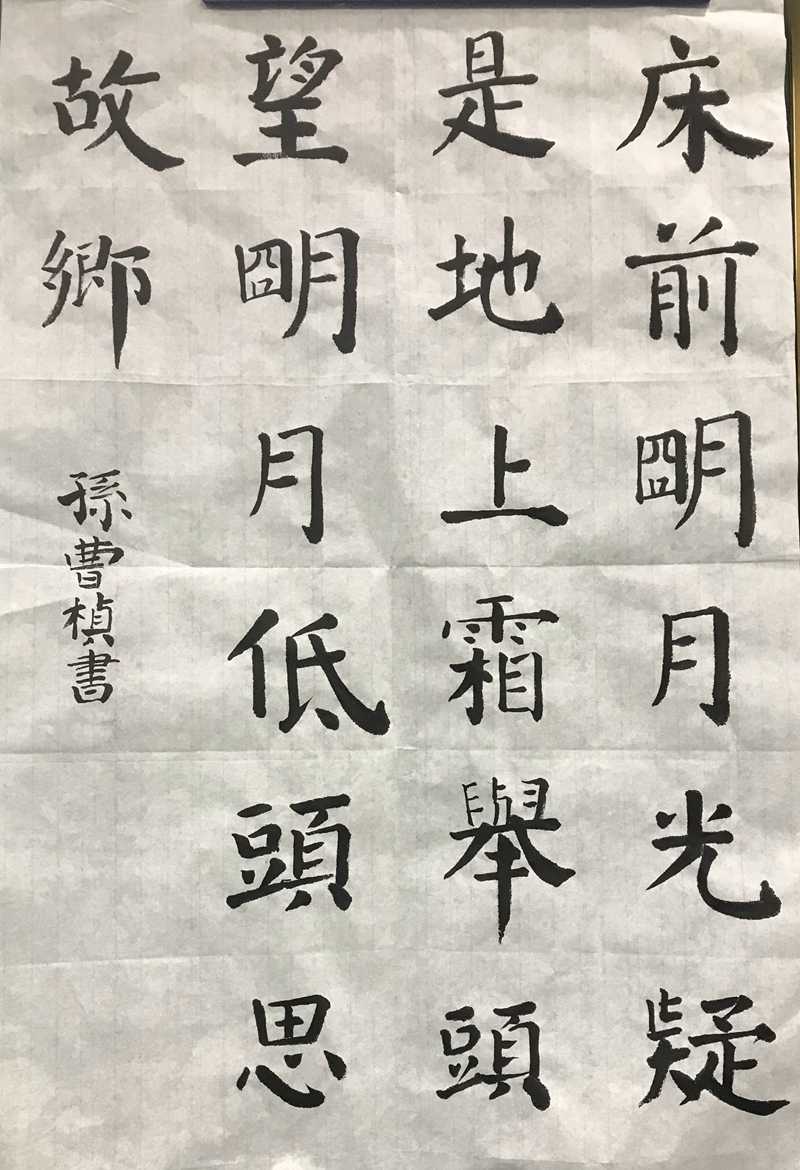 床前明月光疑
是地上霜舉頭
望明月低頭思
故鄉
孫曹楨書